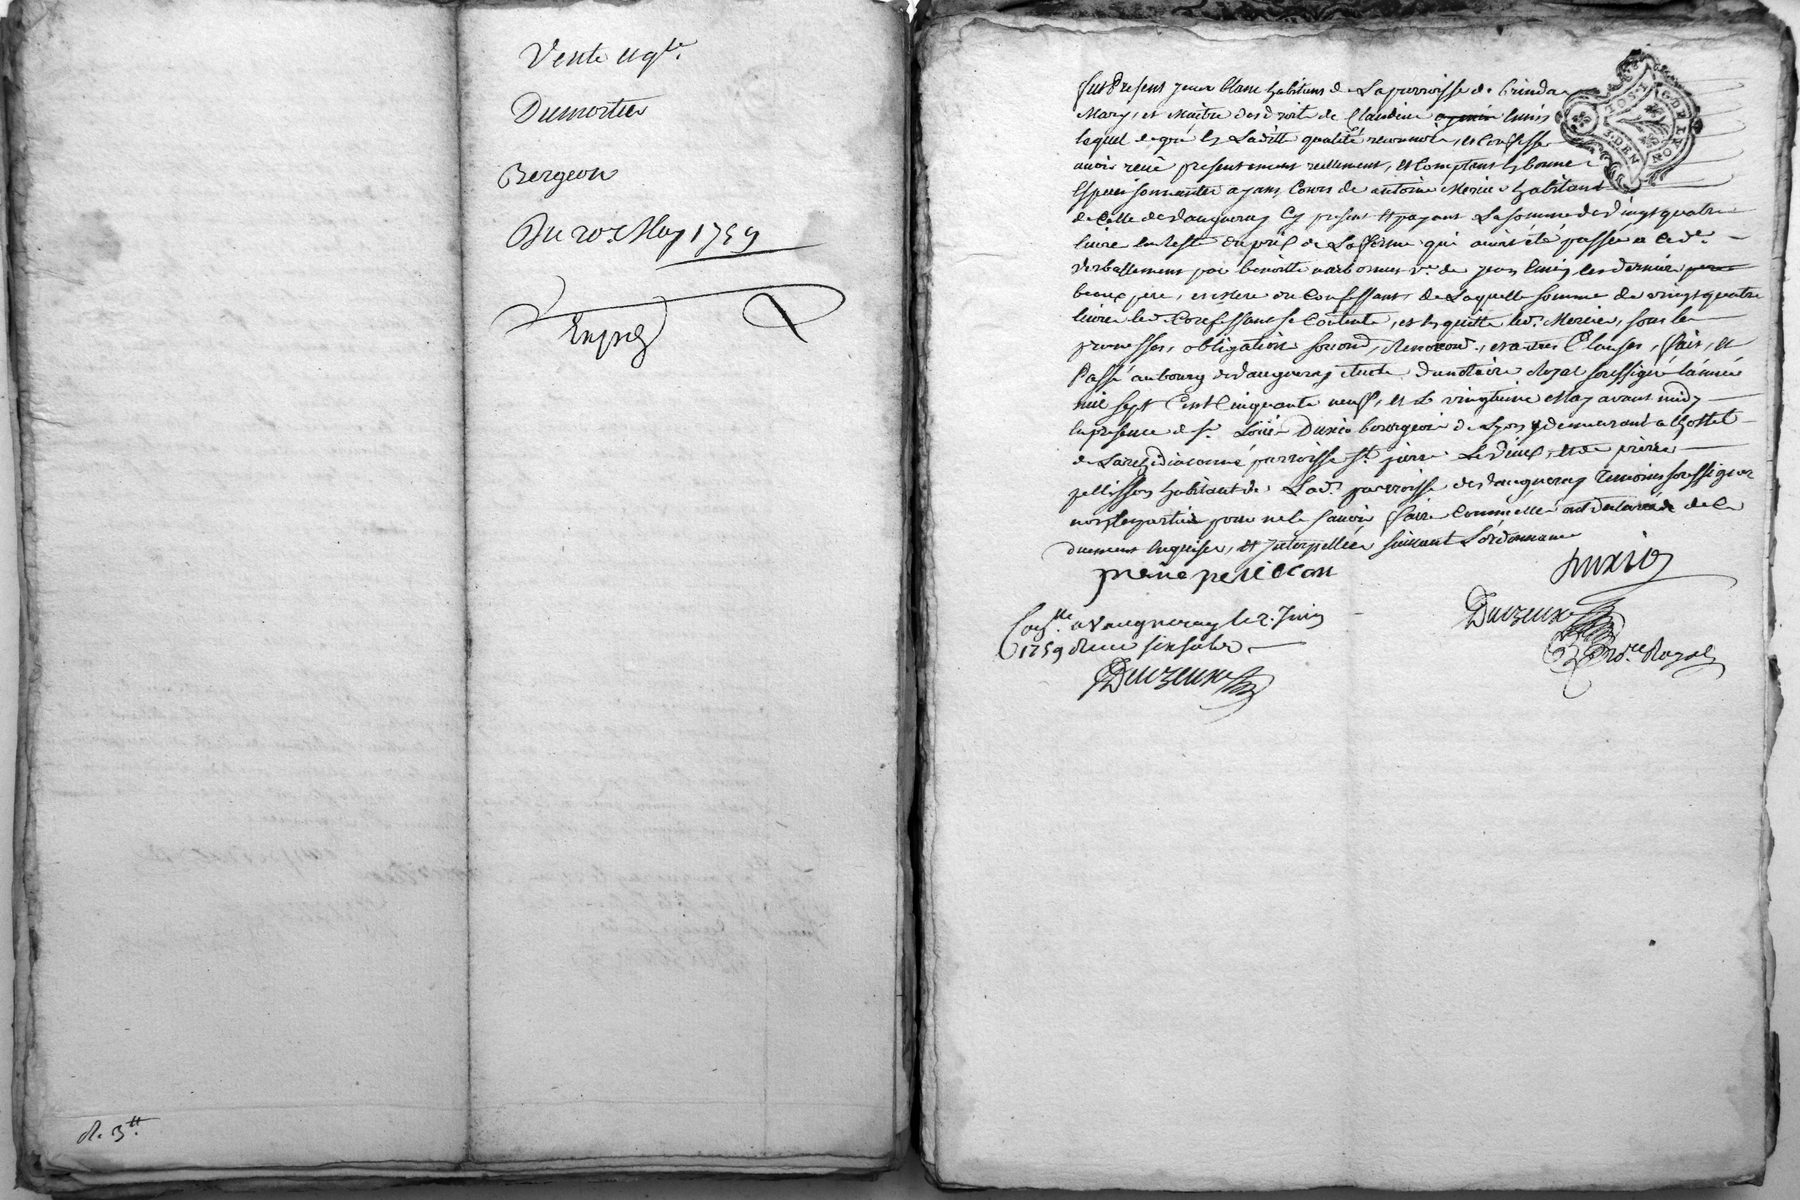 Vente
Dumortier
Bergeon
Du 20e. May 1759
Expéd
R. 3tt.
G. DE LYON
3. DEN
fut Present Jean Blanc habitant de La parroisse de Brinda
Mary, et Maitre des droits de Claudine
lequel de gré en Laditte qualité reconnoit, et Confesse
avoir reçu presentement reellement, et Comptant en bonnes
Especes sonnantes ayant Cours de antoine Mercier habitant
de Celle de Vaugneray Cy present et payant La somme de Vingt quatre
livres du reste du prix de La ferme qui auroit été passée a Led.
Verballement par benoitte ve. de jean les dernier
beau pere, et mere du Confessant, de Laquelle somme de vingt quatre
livres led. Confessant se Contente, et en quitte led. Mercier, sous les
promesses, obligations, renond., et autres Clauses, fait, et
Passé au bourg de Vaugneray etude du notaire Royal soussigné L'année
mil sept Cent Cinquante neuf, et Le vingtieme May avant midy
En presence de sr. bourgeois de Lyon y demeurant a L'hostel
de parroisse st. pierre Le Vieux, et de pierre
pellisson habitant de Lad. parroisse de Vaugneray temoins soussignez
non les parties pour ne le savoir faire Comme elles ont declaré de Ce
duement enquises, et Interpellées suivant L'ordonnance
pierre pellisson
Duxio
Dervieux
No.re Royal
Con.lle a Vaugneray le 2. Juin
1759 Reçu six sols
Dervieux